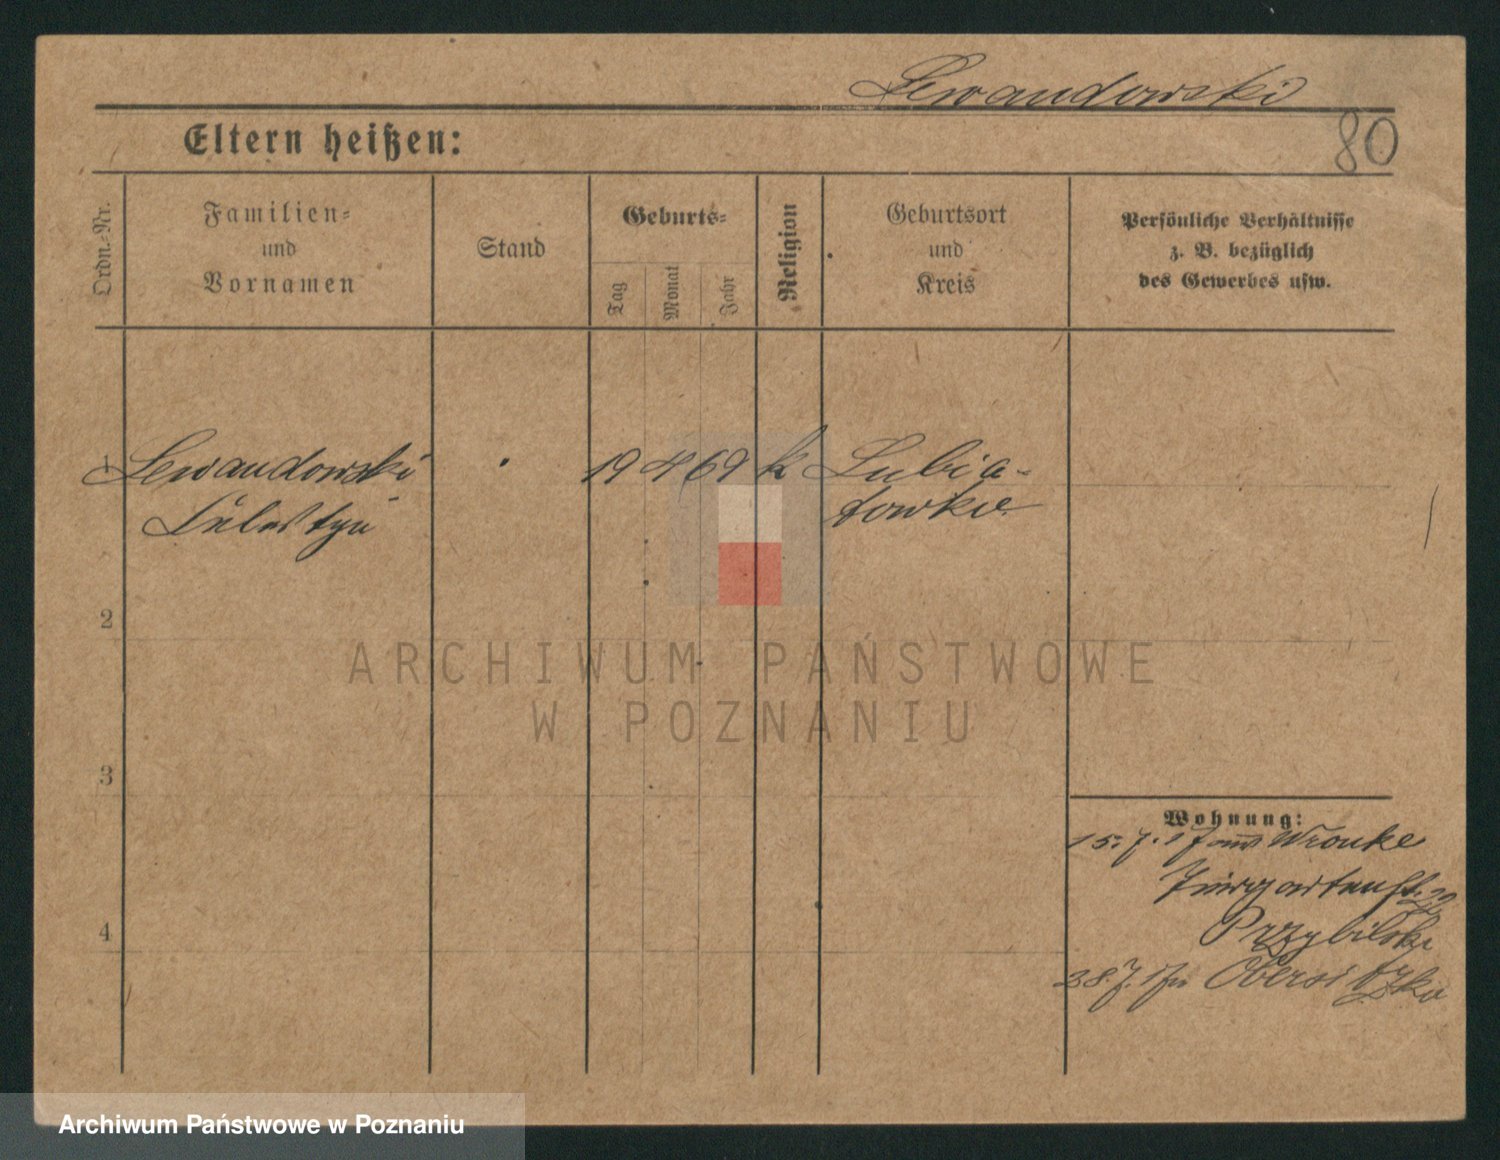 Lewandowski
80
Eltern heißen:
Ordn.-Nr.
Familien-
und
Vornamen
Stand
Geburts-
Tag
Monat
Jahr
Religion
Geburtsort
und
Kreis
Persönliche Verhältnisse
z. B. bezüglich
des Gewerbes usw.
1 Lewandowski 19 4 69 k Lubia-
towko
2
3
4
Wohnung:
15.7.17 aus Wronke
Przybilski
28.7.17 Obersitzko
ARCHIWUM PAŃSTWOWE
W POZNANIU
Archiwum Państwowe w Poznaniu